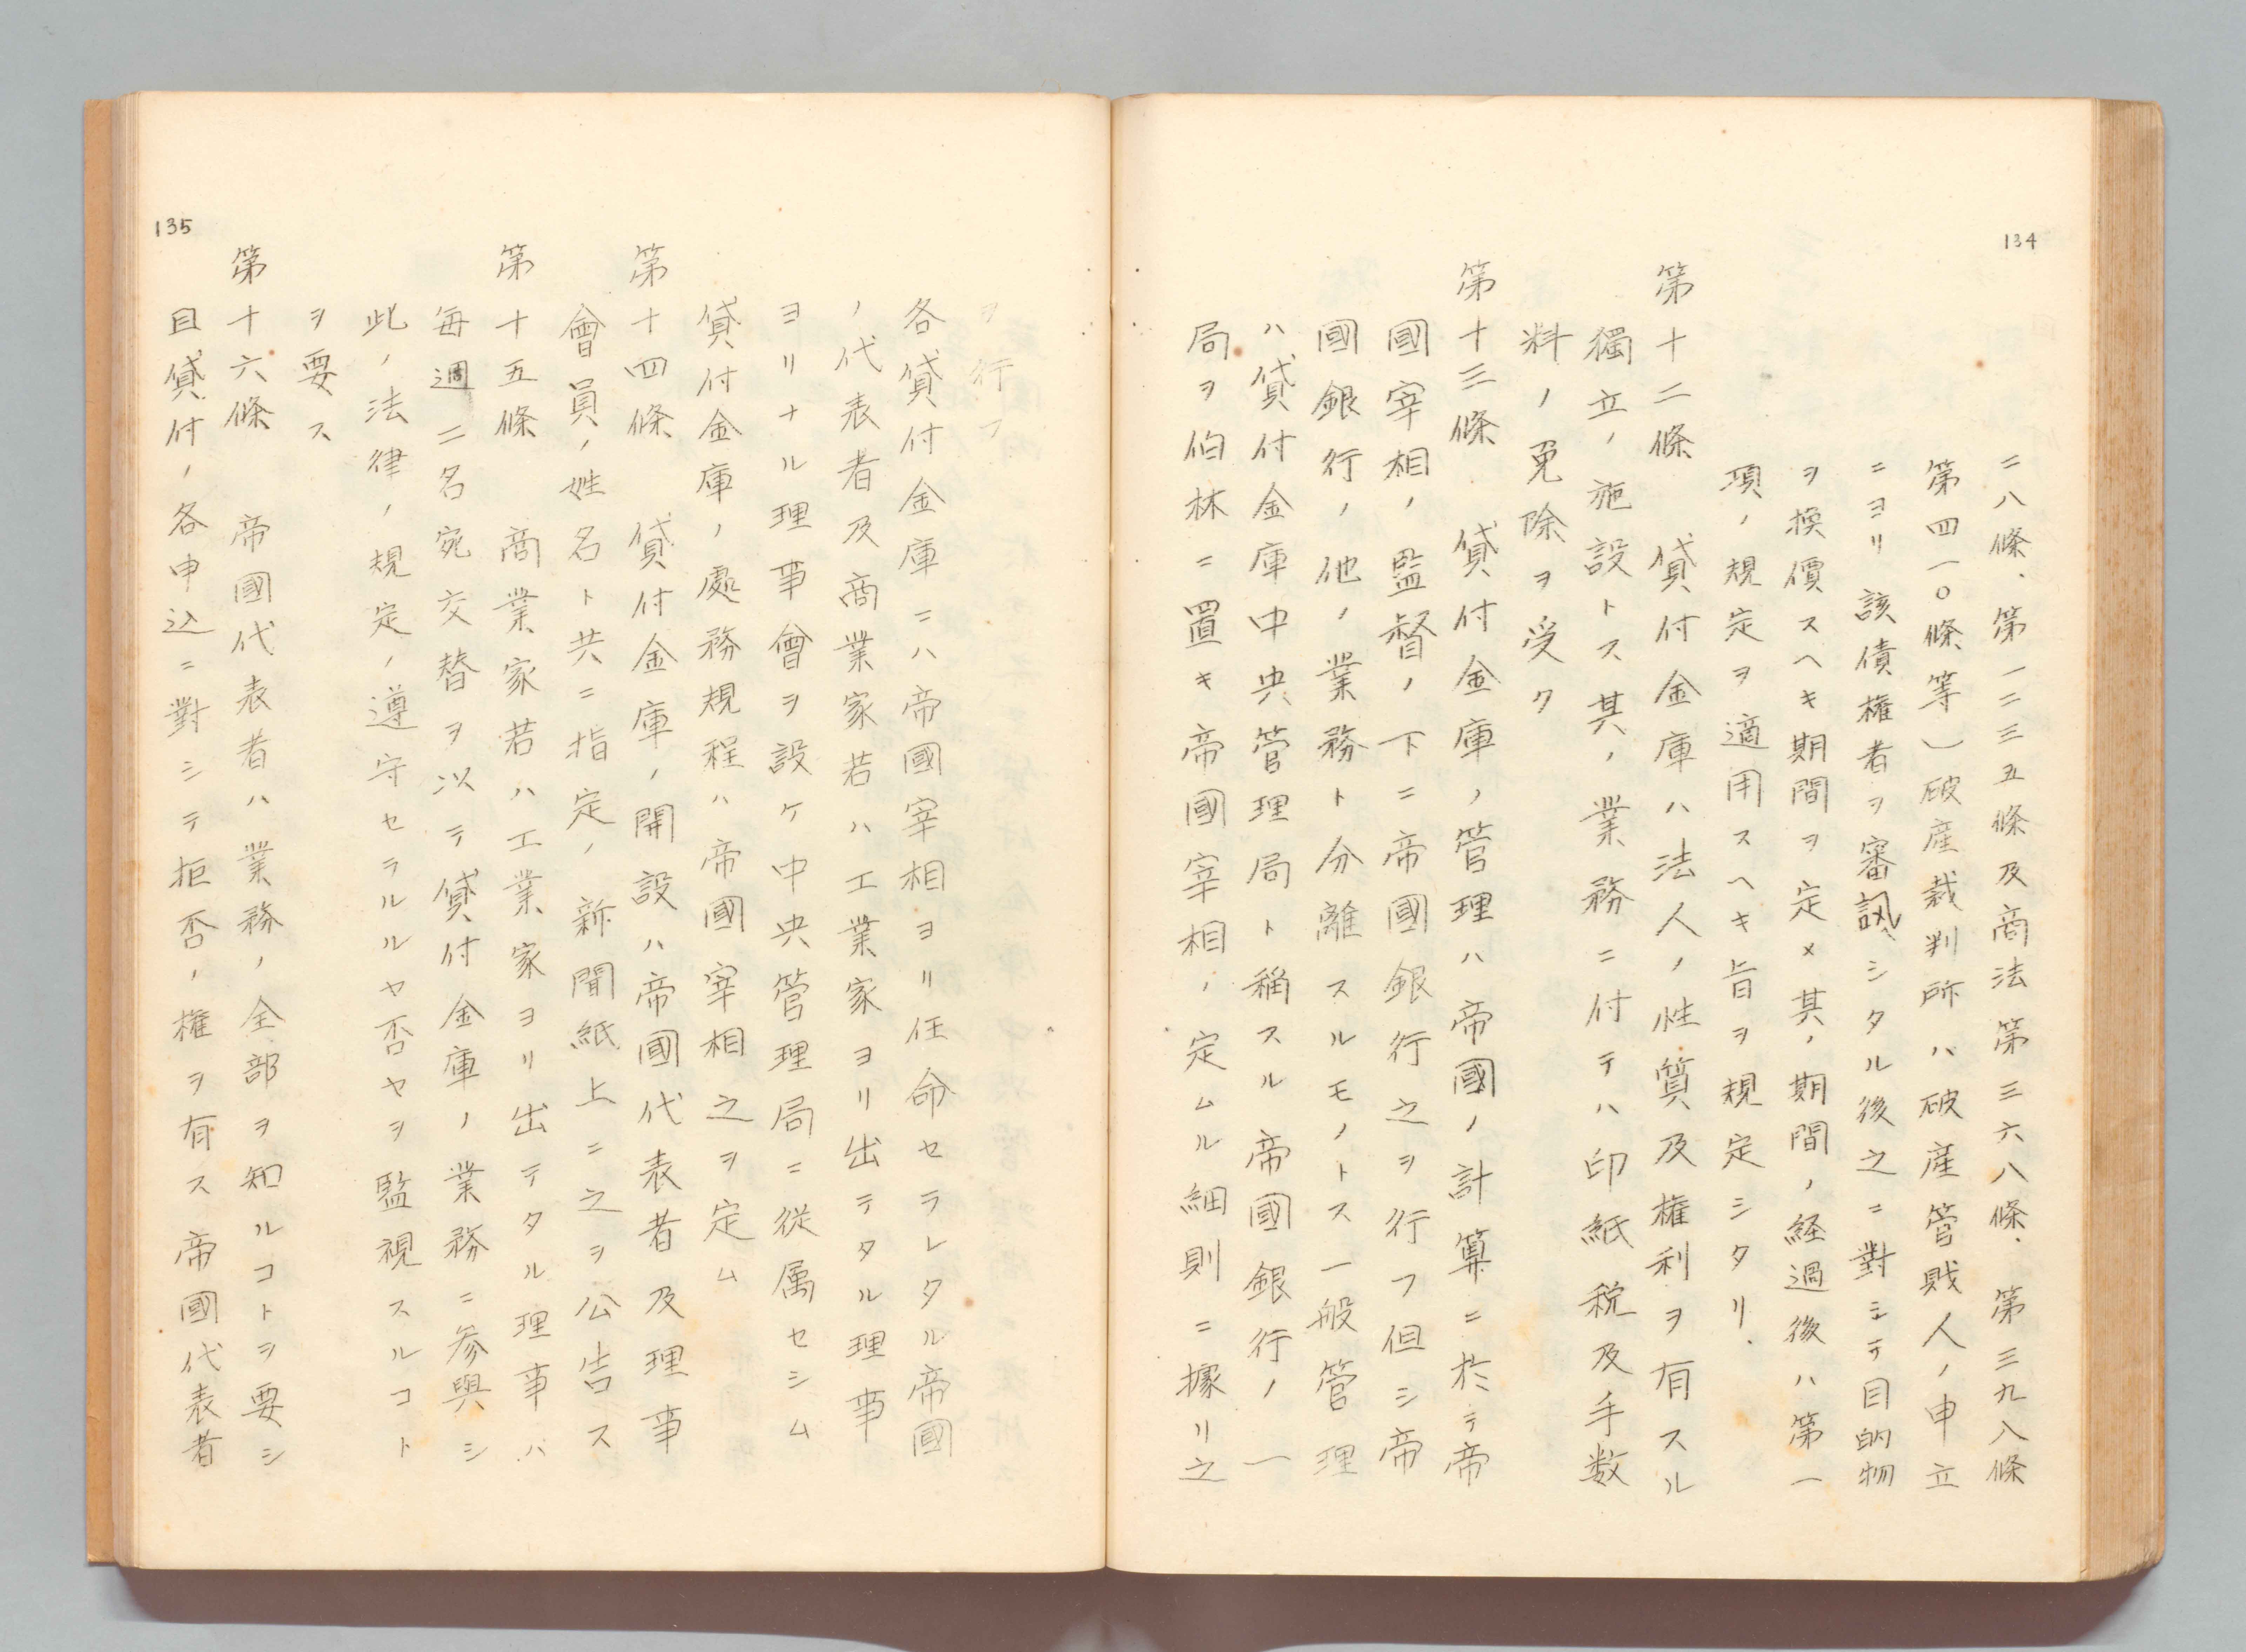 134
二八條、第一二三五條及商法第三六八條、第三九八條
第四一〇條等）破産裁判所ハ破産管財人ノ申立
ニヨリ該債権者ヲ審訊シタル後之ニ對シテ目的物
ヲ換價スヘキ期間ヲ定メ其ノ期間ノ経過後ハ第一
項ノ規定ヲ適用スヘキ旨ヲ規定シタリ、
第十二條　貸付金庫ハ法人ノ性質及権利ヲ有スル
獨立ノ施設トス其ノ業務ニ付テハ印紙税及手数
料ノ免除ヲ受ク
第十三條　貸付金庫ノ管理ハ帝國ノ計算ニ於テ帝
國宰相ノ監督ノ下ニ帝國銀行之ヲ行フ但シ帝
國銀行ノ他ノ業務ト分離スルモノトス一般管理
ハ貸付金庫中央管理局ト稱スル帝國銀行ノ一
局ヲ伯林ニ置キ帝國宰相ノ定ムル細則ニ據リ之
ヲ行フ
各貸付金庫ニハ帝國宰相ヨリ任命セラレタル帝國
ノ代表者及商業家若ハ工業家ヨリ出テタル理事
ヨリナル理事會ヲ設ケ中央管理局ニ従属セシム
貸付金庫ノ處務規程ハ帝國宰相之ヲ定ム
第十四條　貸付金庫ノ開設ハ帝國代表者及理事
會員ノ姓名ト共ニ指定ノ新聞紙上ニ之ヲ公告ス
第十五條　商業家若ハ工業家ヨリ出テタル理事ハ
毎週二名宛交替ヲ以テ貸付金庫ノ業務ニ参與シ
此ノ法律ノ規定ノ遵守セラルルヤ否ヤヲ監視スルコト
ヲ要ス
第十六條　帝國代表者ハ業務ノ全部ヲ知ルコトヲ要シ
且貸付ノ各申込ニ對シテ拒否ノ權ヲ有ス帝國代表者
135